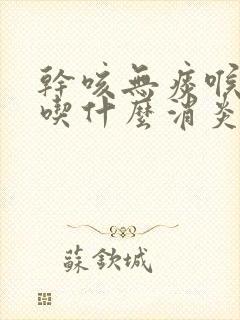 幹咳無痰喉
喫什麼消炎
蘇欽城